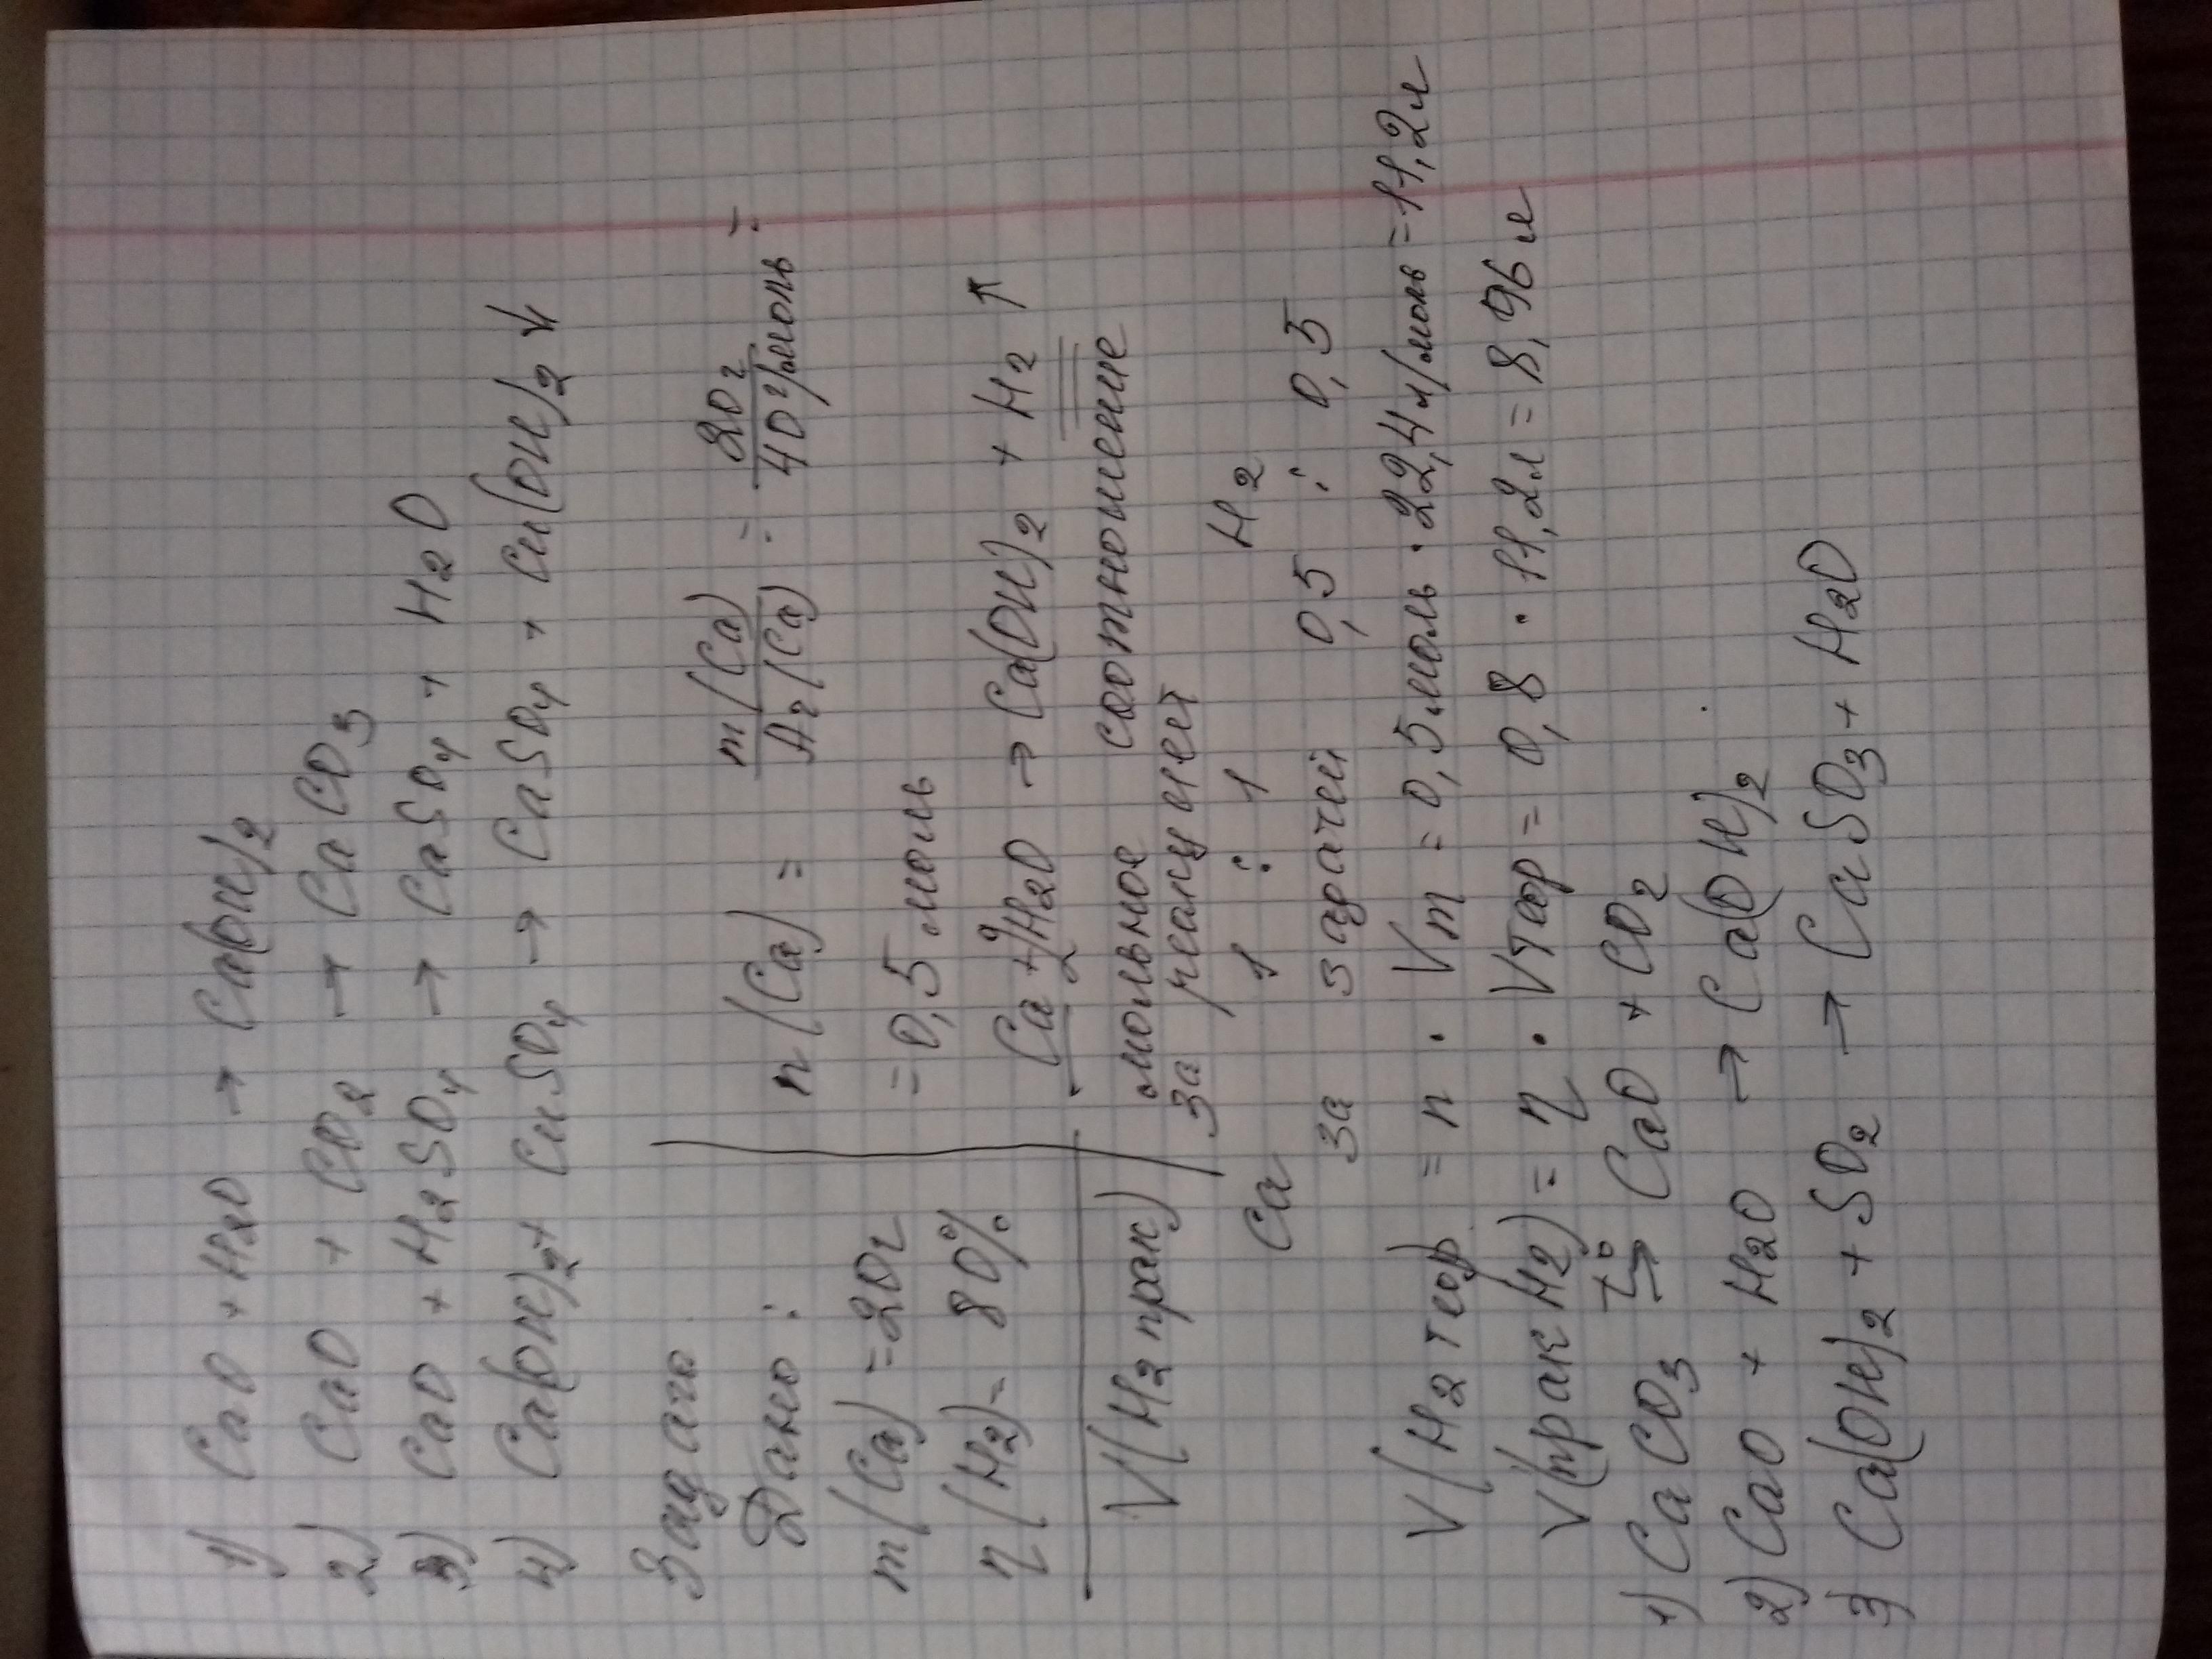 1) CaO + H2O → Ca(OH)2
2) CaO + CO2 → CaCO3
3) CaO + H2SO4 → CaSO4 + H2O
4) Ca(OH)2 + CuSO4 → CaSO4 + Cu(OH)2 ↓
Задача
Дано:
m(Ca) = 20г
η(H2) = 80%
V(H2 прак)
n(Ca) = m(Ca)/Ar(Ca) = 20г/40г/моль =
= 0,5 моль
Ca + 2H2O → Ca(OH)2 + H2 ↑
2
мольное соотношение
за реакцией
Ca 1 : 1 H2
за задачей 0,5 : 0,5
V(H2 теор) = n · Vm = 0,5моль · 22,4л/моль = 11,2л
V(прак H2) = η · Vтеор = 0,8 · 11,2л = 8,96л
1) CaCO3 t°→ CaO + CO2
2) CaO + H2O → Ca(OH)2
3) Ca(OH)2 + SO2 → CaSO3 + H2O